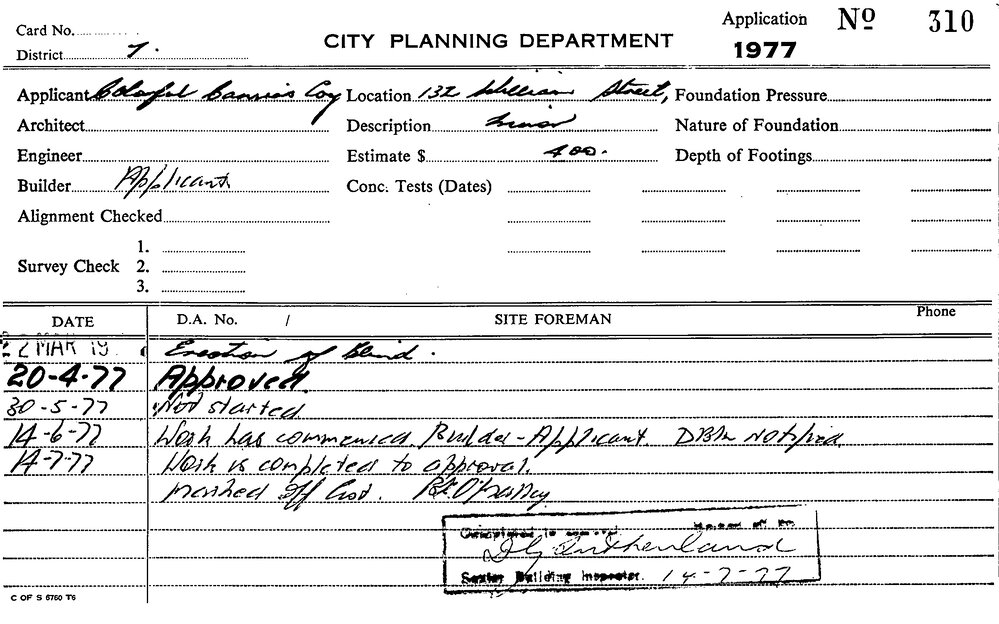 Card No.
Application No 310
District 7.
CITY PLANNING DEPARTMENT
1977
Applicant Colorful Canvas Coy Location 132 William Street, Foundation Pressure
Architect Description Minor Nature of Foundation
Engineer Estimate $ 400. Depth of Footings
Builder Applicant Conc. Tests (Dates)
Alignment Checked
1.
Survey Check 2.
3.
DATE D.A. No. / SITE FOREMAN Phone
2 MAR 19 Erection of Blind.
20-4-77 Approved
30-5-77 Not started
14-6-77 Work has commenced. Builder-Applicant. notified.
14-7-77 Work is completed to approval.
marked off list.
Completed to
Senior Building Inspector. 14-7-77
C OF S 6760 T6